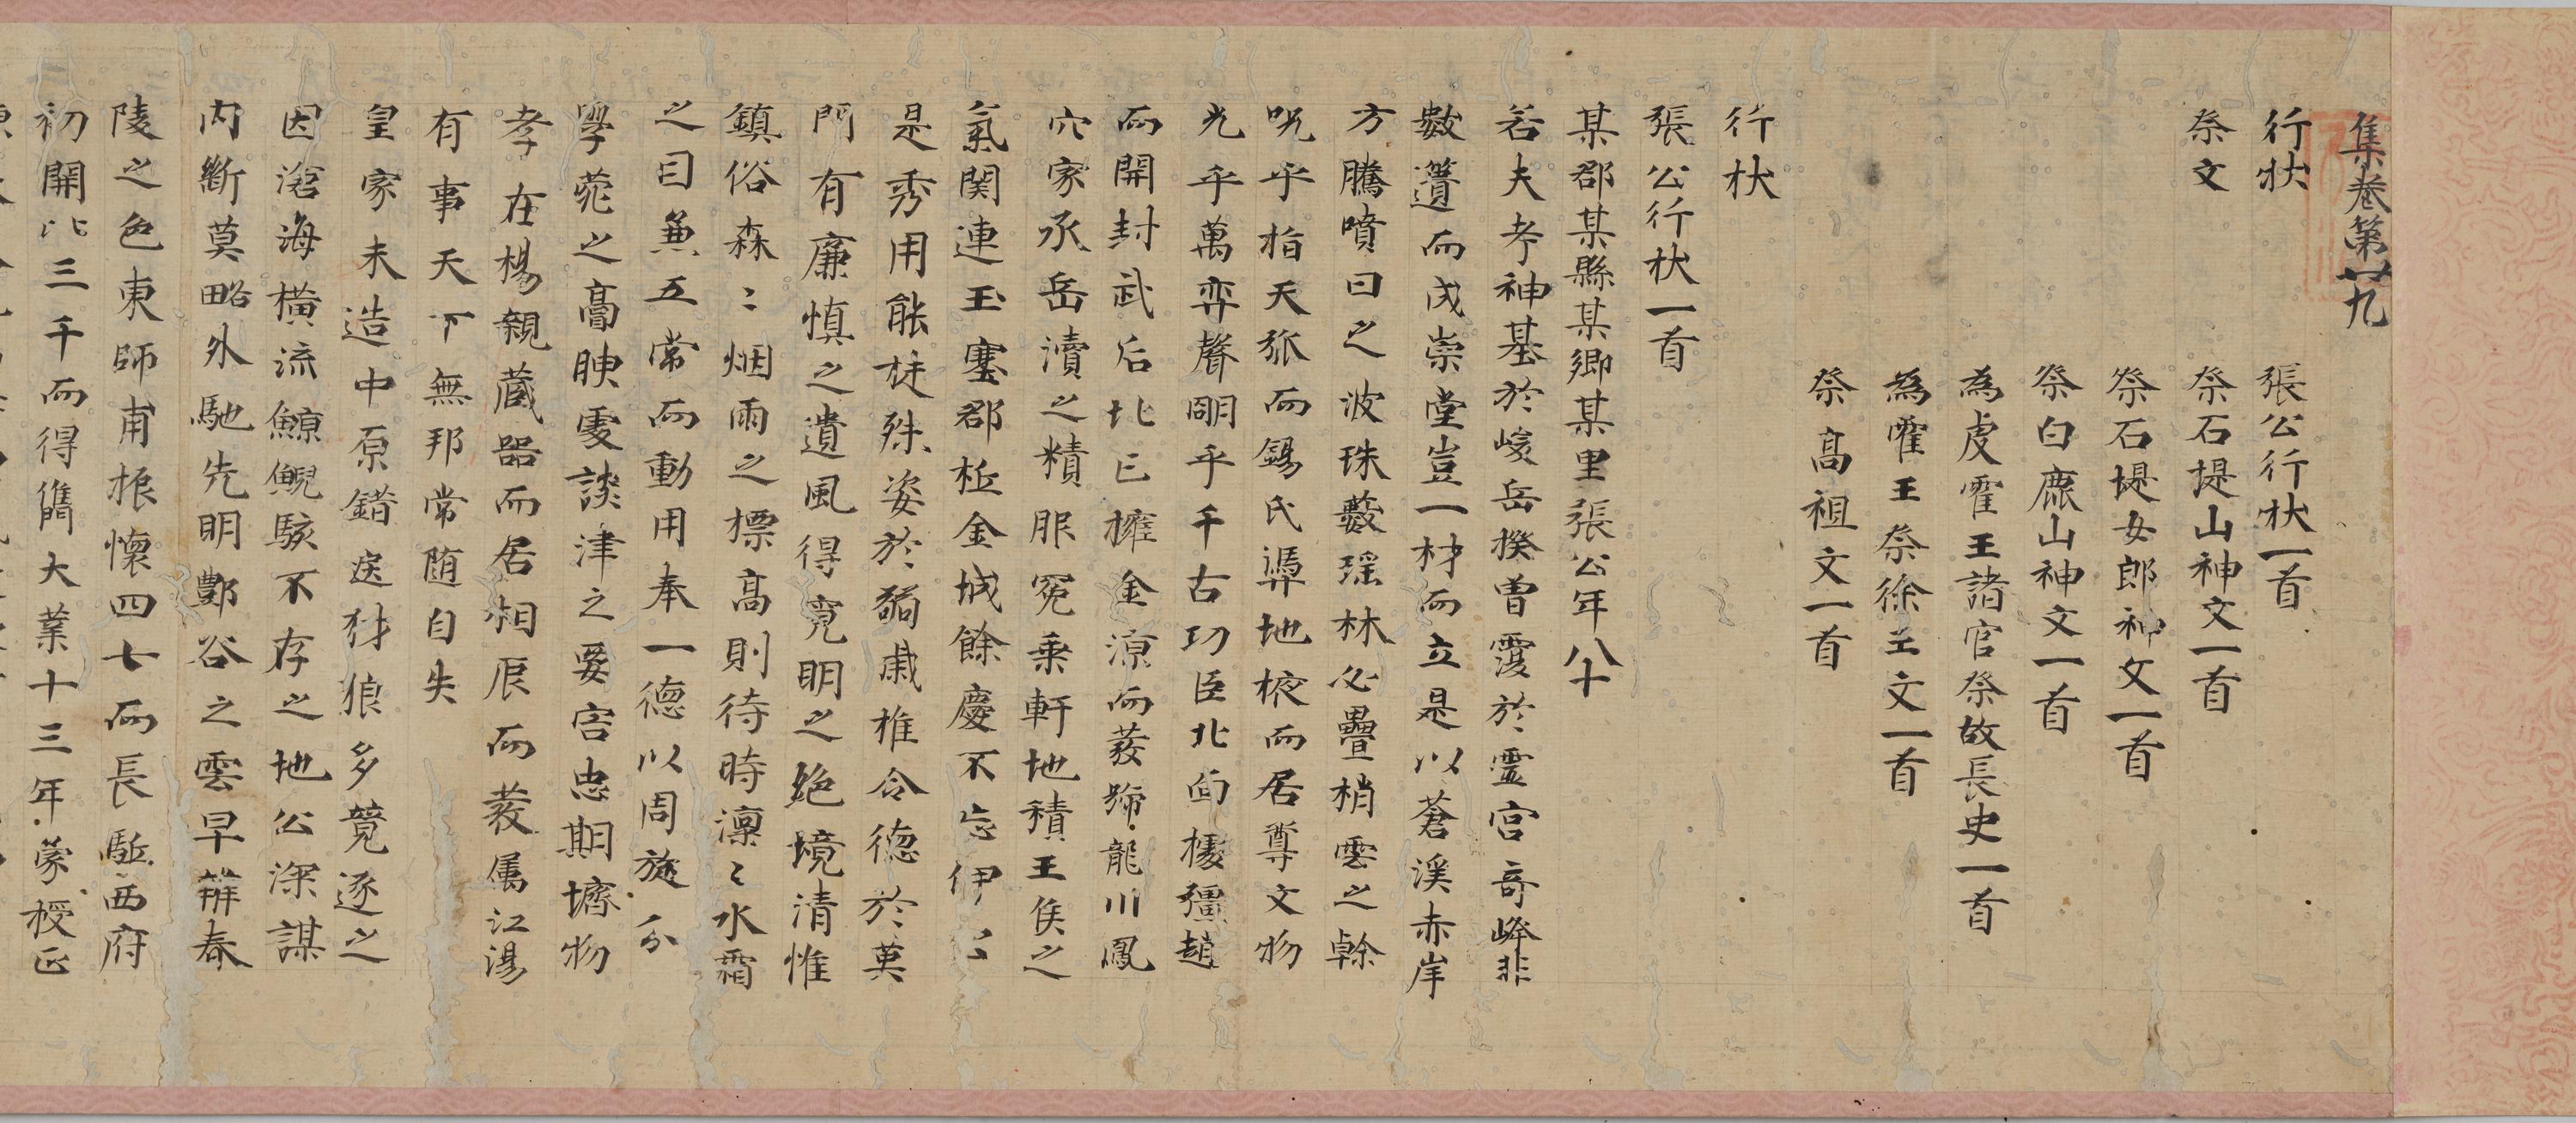 集卷第廿九
行狀 張公行狀一首
祭文 祭石堤山神文一首
祭石堤女郎神文一首
祭白鹿山神文一首
為虔霍王諸官祭故長史一首
為霍王祭徐王文一首
祭高祖文一首
行狀
張公行狀一首
某郡某縣某鄉某里張公年八十
若夫考神基於峻岳揆曾霞於霊宮奇峰非
數簣而成崇堂豈一材而立是以蒼溪赤岸
方騰噴日之波珠藪瑶林必疊梢雲之幹
況乎指天弧而錫氏譯地棭而居尊文物
光乎萬弈聲明乎千古功臣北面樓彊趙
而開封武后北亡擁金源而裦號龍川鳳
穴家承岳瀆之精服冕乗軒地積王侯之
氣関連玉塞郡枉金城餘慶不忘伊公
是秀用能挺殊姿於觽歲椎令德於萬
門有廉慎之遺風得寛明之絶境清惟
鎮俗森〻烟雨之標高則待時凜〻水霜
之日兼五常而動用奉一德以周旋分
學菀之高映處談津之要害忠期壔物
孝在楊親蔵器而居相辰而裦属江湯
有事天下無邦常随自失
皇家未造中原錯逘豺狼多競逐之
因滄海横流鯨鯢駭不存之地公深謀
内斷莫略外馳先明鄷谷之雲早辯春
陵之色東師甫振懐四七而長駈西府
初開比三千而得儁大業十三年蒙授正